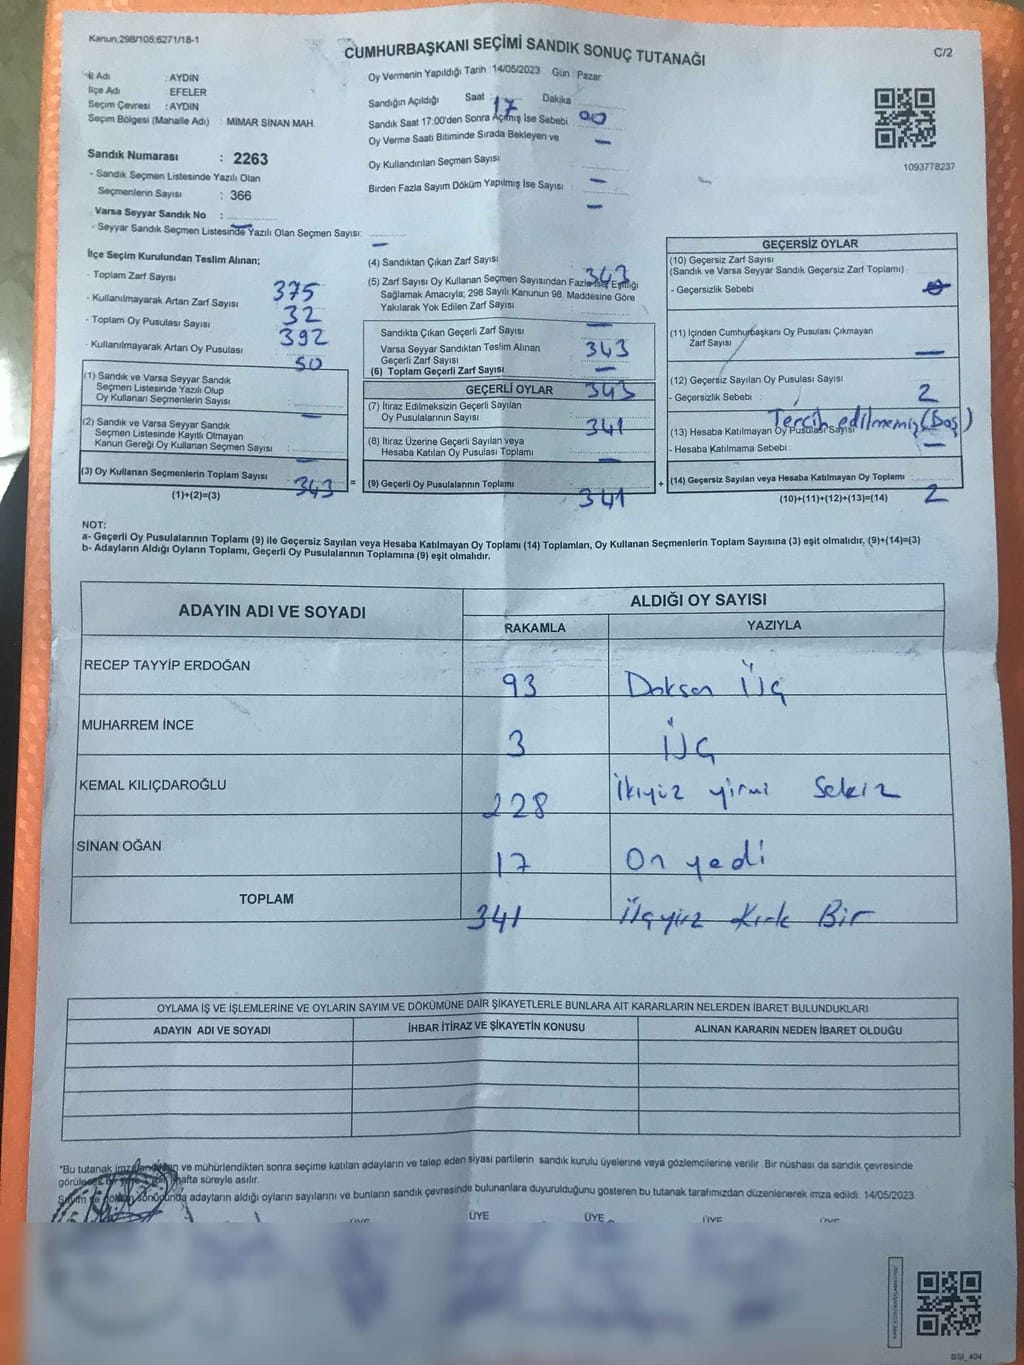 Kanun,298/105;6271/18-1
CUMHURBAŞKANI SEÇİMİ SANDIK SONUÇ TUTANAĞI
C/2
İl Adı : AYDIN
İlçe Adı : EFELER
Seçim Çevresi : AYDIN
Seçim Bölgesi (Mahalle Adı) : MİMAR SİNAN MAH.
Sandık Numarası : 2263
- Sandık Seçmen Listesinde Yazılı Olan
Seçmenlerin Sayısı : 366
Varsa Seyyar Sandık No : -
- Seyyar Sandık Seçmen Listesinde Yazılı Olan Seçmen Sayısı: -
Oy Vermenin Yapıldığı Tarih : 14/05/2023 Gün : Pazar
Sandığın Açıldığı Saat : 17 Dakika : 00
Sandık Saat 17:00'den Sonra Açılmış İse Sebebi : -
Oy Verme Saati Bitiminde Sırada Bekleyen ve
Oy Kullandırılan Seçmen Sayısı : -
Birden Fazla Sayım Döküm Yapılmış İse Sayısı : -
1093778237
İlçe Seçim Kurulundan Teslim Alınan;
- Toplam Zarf Sayısı 375
- Kullanılmayarak Artan Zarf Sayısı 32
- Toplam Oy Pusulası Sayısı 392
- Kullanılmayarak Artan Oy Pusulası 50
(1) Sandık ve Varsa Seyyar Sandık
Seçmen Listesinde Yazılı Olup
Oy Kullanan Seçmenlerin Sayısı : -
(2) Sandık ve Varsa Seyyar Sandık
Seçmen Listesinde Kayıtlı Olmayan
Kanun Gereği Oy Kullanan Seçmen Sayısı : -
(3) Oy Kullanan Seçmenlerin Toplam Sayısı : 343 =
(1)+(2)=(3)
(4) Sandıktan Çıkan Zarf Sayısı : 343
(5) Zarf Sayısı Oy Kullanan Seçmen Sayısından Fazla İse, Eşitliği
Sağlamak Amacıyla; 298 Sayılı Kanunun 98. Maddesine Göre
Yakılarak Yok Edilen Zarf Sayısı : -
Sandıkta Çıkan Geçerli Zarf Sayısı : 343
Varsa Seyyar Sandıktan Teslim Alınan
Geçerli Zarf Sayısı : -
(6) Toplam Geçerli Zarf Sayısı : 343
GEÇERLİ OYLAR
(7) İtiraz Edilmeksizin Geçerli Sayılan
Oy Pusulalarının Sayısı : 341
(8) İtiraz Üzerine Geçerli Sayılan veya
Hesaba Katılan Oy Pusulası Toplamı : -
(9) Geçerli Oy Pusulalarının Toplamı : 341 +
GEÇERSİZ OYLAR
(10) Geçersiz Zarf Sayısı
(Sandık ve Varsa Seyyar Sandık Geçersiz Zarf Toplamı)
- Geçersizlik Sebebi :
(11) İçinden Cumhurbaşkanı Oy Pusulası Çıkmayan
Zarf Sayısı : -
(12) Geçersiz Sayılan Oy Pusulası Sayısı : 2
- Geçersizlik Sebebi : Tercih edilmemiş (Boş)
(13) Hesaba Katılmayan Oy Pusulası Sayısı : -
- Hesaba Katılmama Sebebi :
(14) Geçersiz Sayılan veya Hesaba Katılmayan Oy Toplamı : 2
(10)+(11)+(12)+(13)=(14)
NOT:
a- Geçerli Oy Pusulalarının Toplamı (9) ile Geçersiz Sayılan veya Hesaba Katılmayan Oy Toplamı (14) Toplamları, Oy Kullanan Seçmenlerin Toplam Sayısına (3) eşit olmalıdır, (9)+(14)=(3)
b- Adayların Aldığı Oyların Toplamı, Geçerli Oy Pusulalarının Toplamına (9) eşit olmalıdır.
ADAYIN ADI VE SOYADI ALDIĞI OY SAYISI
RAKAMLA YAZIYLA
RECEP TAYYİP ERDOĞAN 93 Doksan Üç
MUHARREM İNCE 3 Üç
KEMAL KILIÇDAROĞLU 228 İkiyüz yirmi Sekiz
SİNAN OĞAN 17 On yedi
TOPLAM 341 Üçyüz Kırk Bir
OYLAMA İŞ VE İŞLEMLERİNE VE OYLARIN SAYIM VE DÖKÜMÜNE DAİR ŞİKAYETLERLE BUNLARA AİT KARARLARIN NELERDEN İBARET BULUNDUKLARI
ADAYIN ADI VE SOYADI İHBAR İTİRAZ VE ŞİKAYETİN KONUSU ALINAN KARARIN NEDEN İBARET OLDUĞU
*Bu tutanak imzalandıktan ve mühürlendikten sonra seçime katılan adayların ve talep eden siyasi partilerin sandık kurulu üyelerine veya gözlemcilerine verilir. Bir nüshası da sandık çevresinde
hafta süreyle asılır.
Sayım ve döküm sonucunda adayların aldığı oyların sayılarını ve bunların sandık çevresinde bulunanlara duyurulduğunu gösteren bu tutanak tarafımızdan düzenlenerek imza edildi. 14/05/2023
ÜYE ÜYE ÜYE ÜYE ÜYE
BSI_404